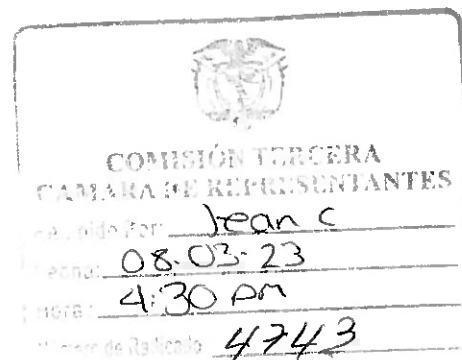 COMISIÓN TERCERA
CAMARA DE REPRESENTANTES
Recibido Por: Jean C
Fecha: 08-03-23
Hora: 4:30 pm
Número de Radicado 4743